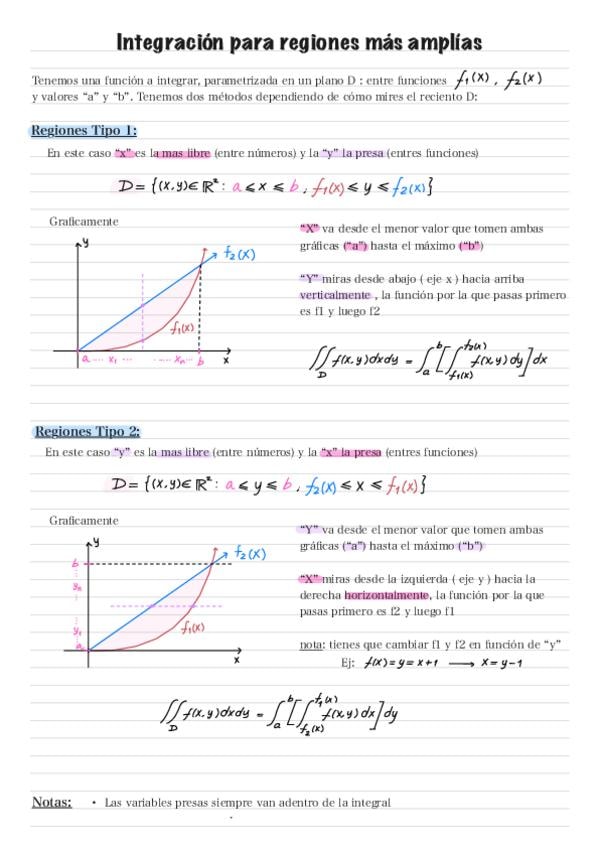 Integración para regiones más amplías
Tenemos una función a integrar, parametrizada en un plano D : entre funciones f₁(x) , f₂(x)
y valores “a” y “b”. Tenemos dos métodos dependiendo de cómo mires el reciento D:
Regiones Tipo 1:
En este caso “x” es la mas libre (entre números) y la “y” la presa (entres funciones)
D = {(x,y) ∈ ℝ² : a ⩽ x ⩽ b , f₁(x) ⩽ y ⩽ f₂(x)}
Graficamente
y
f₂(x)
f₁(x)
a ... x₁ ... ... xₙ ... b x
“X” va desde el menor valor que tomen ambas
gráficas (“a”) hasta el máximo (“b”)
“Y” miras desde abajo ( eje x ) hacia arriba
verticalmente , la función por la que pasas primero
es f1 y luego f2
∬_D f(x,y)dxdy = ∫_a^b [∫∫_{f₁(x)}^{f₂(x)} f(x,y)dy] dx
Regiones Tipo 2:
En este caso “y” es la mas libre (entre números) y la “x” la presa (entres funciones)
D = {(x,y) ∈ ℝ² : a ⩽ y ⩽ b , f₂(x) ⩽ x ⩽ f₁(x)}
Graficamente
y
f₂(x)
b
yₙ
y₁
a
f₁(x)
x
“Y” va desde el menor valor que tomen ambas
gráficas (“a”) hasta el máximo (“b”)
“X” miras desde la izquierda ( eje y ) hacia la
derecha horizontalmente, la función por la que
pasas primero es f2 y luego f1
nota: tienes que cambiar f1 y f2 en función de “y”
Ej: f(x) = y = x+1 ⟶ x = y-1
∬_D f(x,y)dxdy = ∫_a^b [∫∫_{f₂(x)}^{f₁(x)} f(x,y)dx] dy
Notas: • Las variables presas siempre van adentro de la integral